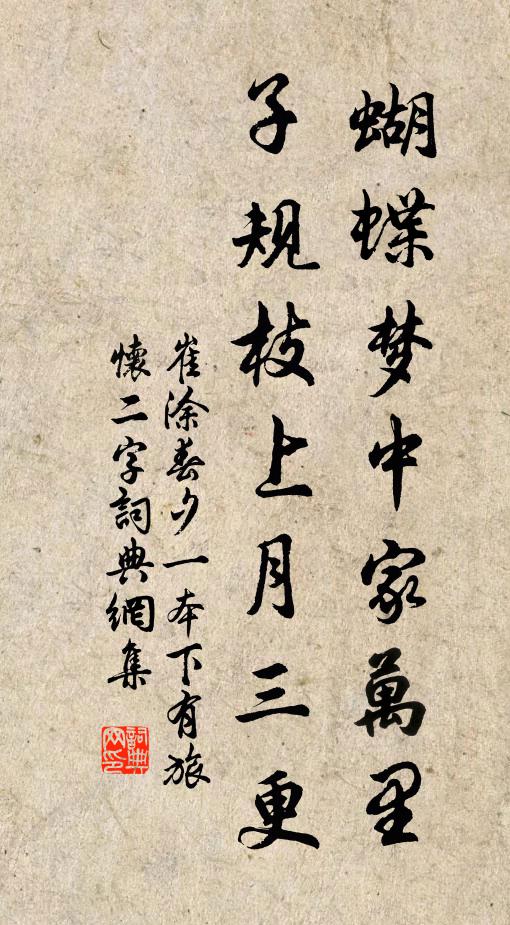 蝴蝶梦中家萬里
子规枝上月三更
崔涂春夕一本下有旅
懷二字詞典網集
詞典
网印